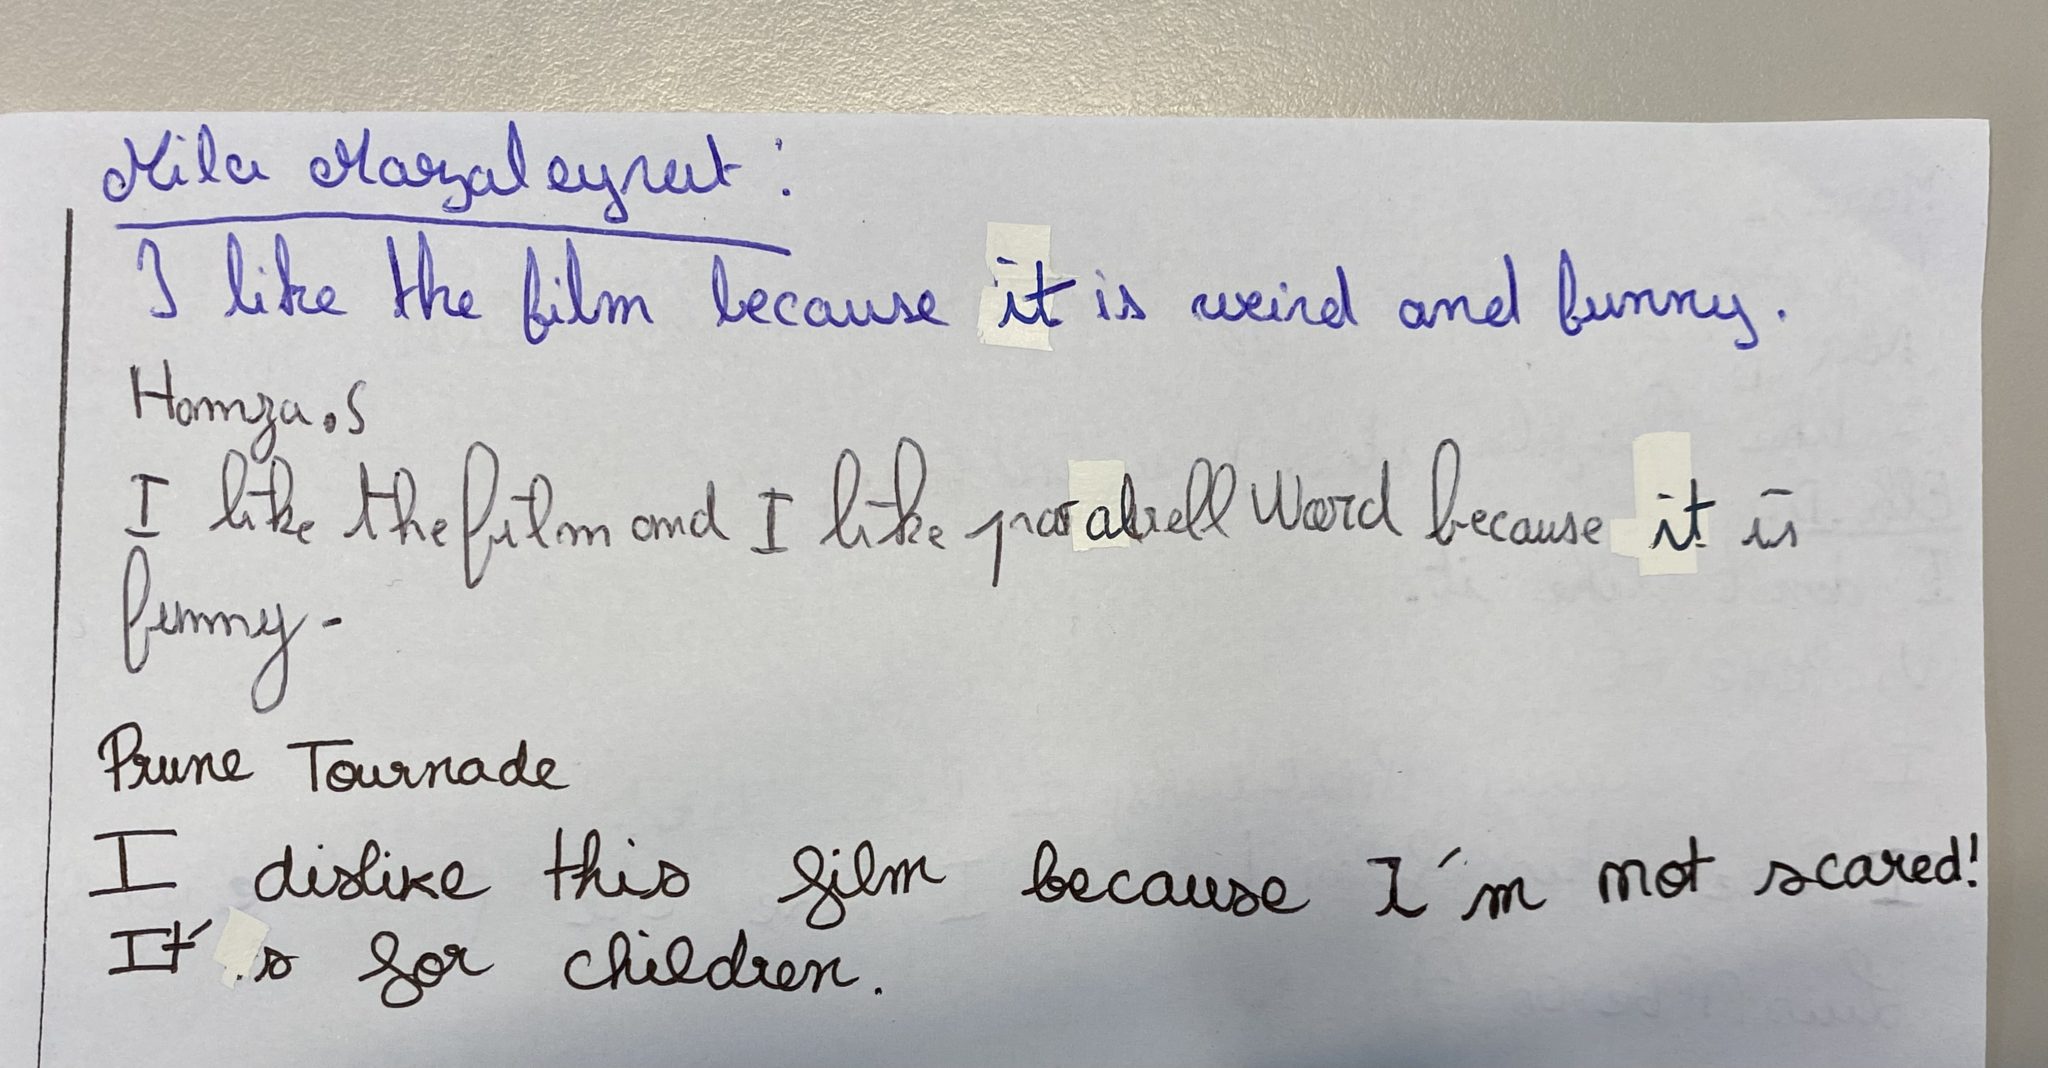 Mila Mazaleyrat :
I like the film because it is weird and funny.
Hamza.S
I like the film and I like paralell Word because it is
funny -
Prune Tournade
I dislike this film because I'm not scared!
It's for children.